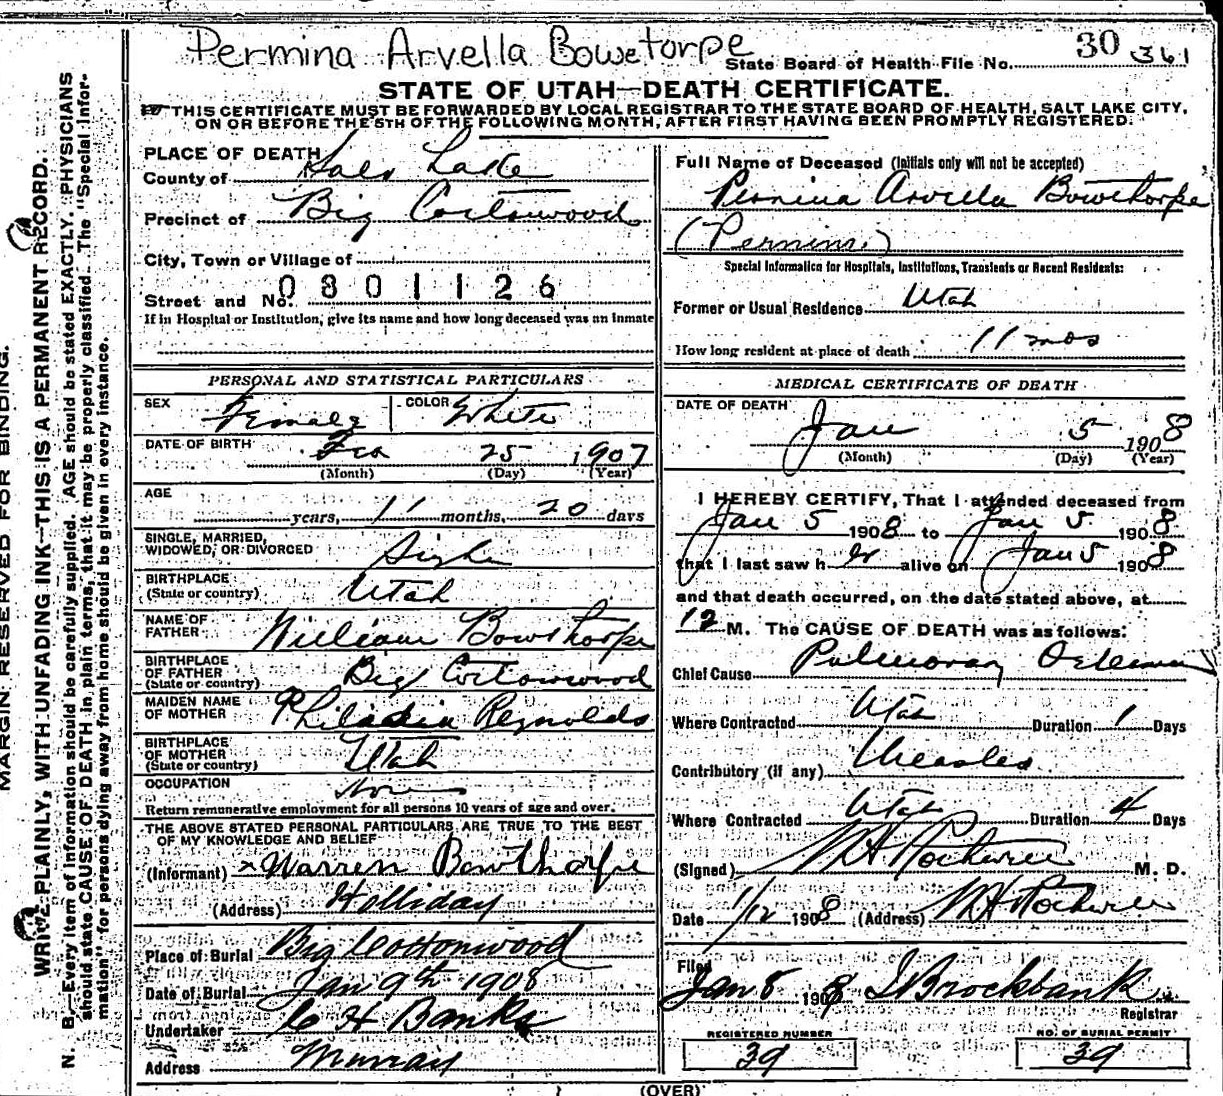 Permina Arvella Bowetorpe
State Board of Health File No. 30 361
STATE OF UTAH—DEATH CERTIFICATE.
THIS CERTIFICATE MUST BE FORWARDED BY LOCAL REGISTRAR TO THE STATE BOARD OF HEALTH, SALT LAKE CITY,
ON OR BEFORE THE 5TH OF THE FOLLOWING MONTH, AFTER FIRST HAVING BEEN PROMPTLY REGISTERED.
PLACE OF DEATH
County of Salt Lake
Precinct of Big Cottonwood
City, Town or Village of
Street and No. 0801126
If in Hospital or Institution, give its name and how long deceased was an inmate
PERSONAL AND STATISTICAL PARTICULARS
SEX Female COLOR White
DATE OF BIRTH 25 1907
(Month) (Day) (Year)
AGE
years, 11 months, 20 days
SINGLE, MARRIED,
WIDOWED, OR DIVORCED Single
BIRTHPLACE
(State or country) Utah
NAME OF
FATHER William Bowthorpe
BIRTHPLACE
OF FATHER
(State or country) Big Cottonwood
MAIDEN NAME
OF MOTHER Reynolds
BIRTHPLACE
OF MOTHER
(State or country) Utah
OCCUPATION None
Return remunerative employment for all persons 10 years of age and over.
THE ABOVE STATED PERSONAL PARTICULARS ARE TRUE TO THE BEST
OF MY KNOWLEDGE AND BELIEF
(Informant) Warren Bowthorpe
(Address) Holliday
Place of Burial Big Cottonwood
Date of Burial Jan 9th 1908
Undertaker C H Banks
Address Murray
Full Name of Deceased (Initials only will not be accepted)
Permina Arvella Bowthorpe
Special Information for Hospitals, Institutions, Transients or Recent Residents:
Former or Usual Residence Utah
How long resident at place of death 11 mos
MEDICAL CERTIFICATE OF DEATH
DATE OF DEATH
Jan 5 1908
(Month) (Day) (Year)
I HEREBY CERTIFY, That I attended deceased from
Jan 5 1908 to Jan 5 1908
that I last saw h er alive on Jan 5 1908
and that death occurred, on the date stated above, at
12 M. The CAUSE OF DEATH was as follows:
Chief Cause Pulmonary Oedema
Where Contracted Utah Duration 1 Days
Contributory (if any) Measles
Where Contracted Utah Duration 4 Days
(Signed) M. D.
Date 1/12 1908 (Address)
Filed
Jan 8 1908 Brockbank
Registrar
REGISTERED NUMBER NO. OF BURIAL PERMIT
39 39
(OVER)
MARGIN RESERVED FOR BINDING.
WRITE PLAINLY, WITH UNFADING INK—THIS IS A PERMANENT RECORD.
N. B.—Every item of information should be carefully supplied. AGE should be stated EXACTLY. PHYSICIANS
should state CAUSE OF DEATH in plain terms, that it may be properly classified. The "Special Infor-
mation" for persons dying away from home should be given in every instance.